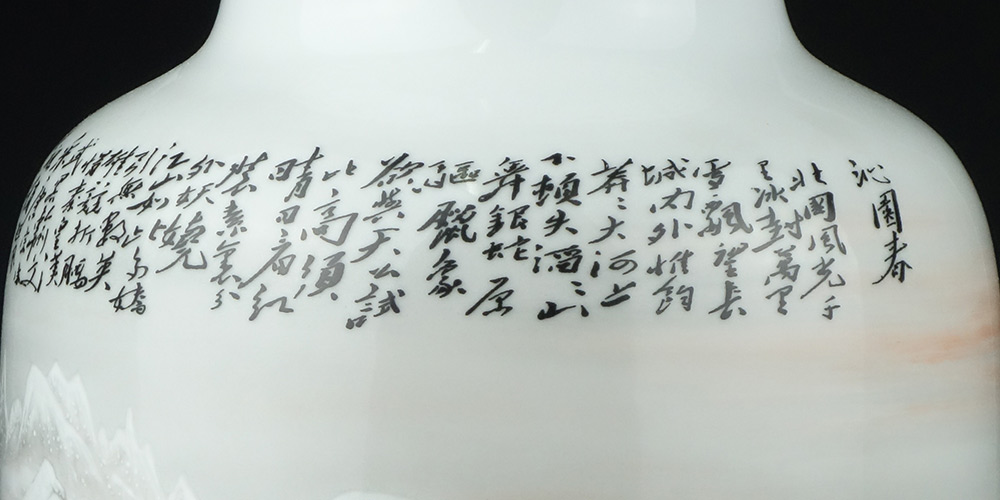 沁園春
北國風光千
里冰封萬里
雪飄望長
城內外惟餘
莽〻大河上
下頓失滔〻山
舞銀蛇原
驅臘象
欲與天公試
比高須
晴日看紅
裝素裹分
外妖嬈
江山如此多嬌
引無數英
雄競折腰
惜秦皇漢
武
文